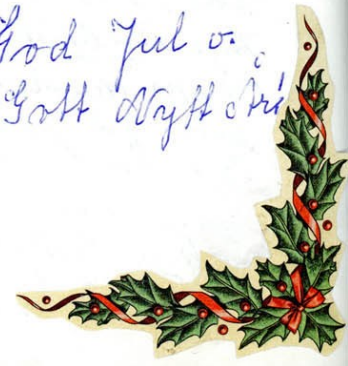 God Jul o.
Gott Nytt År!